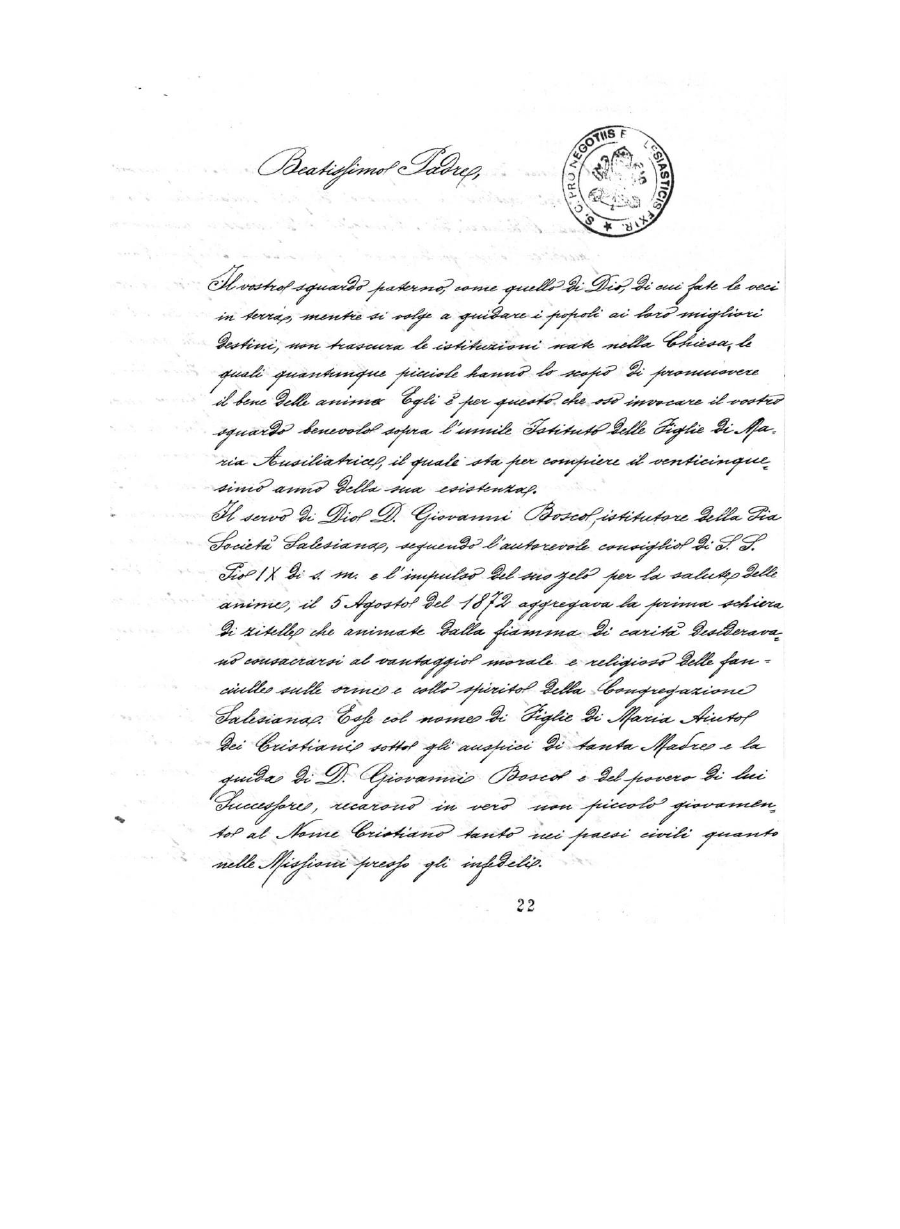 Beatissimo Padre,
S. C. PRO NEGOTIIS E LESIASTICIS EXTR.
Il vostro sguardo paterno, come quello di Dio, di cui fate le veci
in terra, mentre si volge a guidare i popoli ai loro migliori
destini, non trascura le istituzioni nate nella Chiesa, le
quali quantunque picciole hanno lo scopo di promuovere
il bene delle anime Egli è per questo che oso invocare il vostro
sguardo benevolo sopra l'umile Istituto delle Figlie di Ma-
ria Ausiliatrice, il quale sta per compiere il venticinque-
simo anno della sua esistenza.
Il servo di Dio D. Giovanni Bosco, istitutore della Pia
Società Salesiana, seguendo l'autorevole consiglio di S. S.
Pio IX di s. m. e l'impulso del suo zelo per la salute delle
anime, il 5 Agosto del 1872 aggregava la prima schiera
di zitelle che animate dalla fiamma di carità desiderava-
no consacrarsi al vantaggio morale e religioso delle fan-
ciulle sulle orme e collo spirito della Congregazione
Salesiana. Esse col nome di Figlie di Maria Aiuto
dei Cristiani sotto gli auspici di tanta Madre e la
guida di D. Giovanni Bosco e del povero di lui
Successore, recarono in vero non piccolo giovamen-
to al Nome Cristiano tanto nei paesi civili quanto
nelle Missioni presso gli infedeli.
22